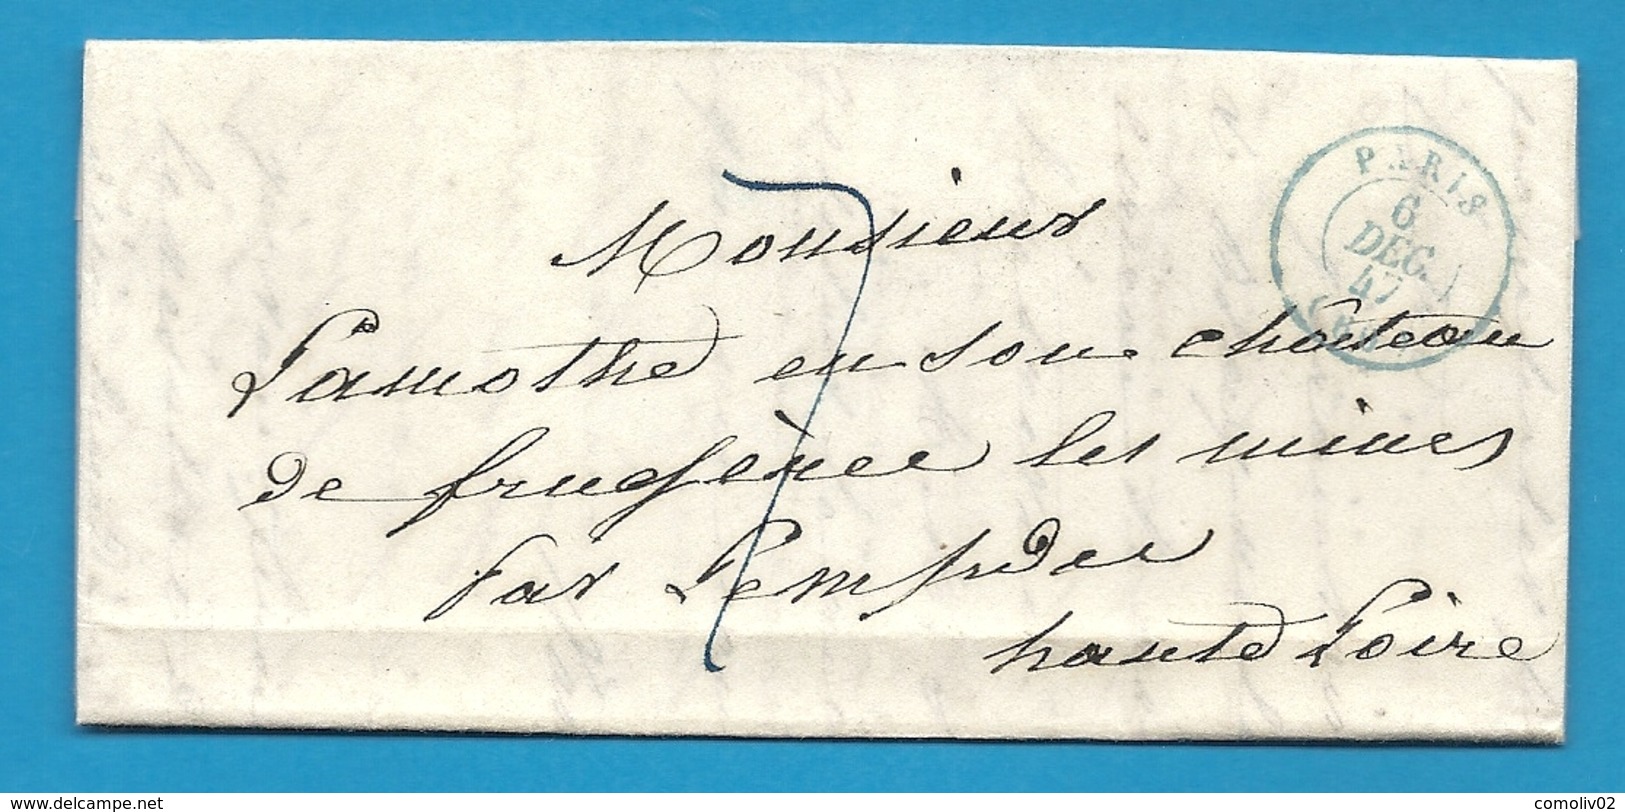 Monsieur
Lamothe en son château
de frugères les mines
par Lempdes
haute Loire
7
PARIS
6
DEC.
47
(60)
www.delcampe.net
comoliv02